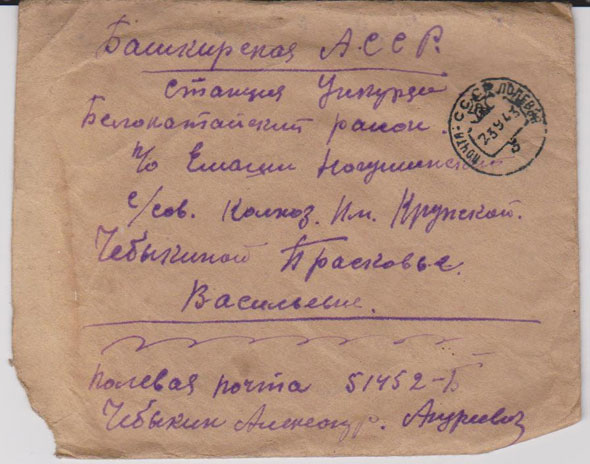 Башкирская А.С.С.Р.
станция Ункурда
Белокатайский район.
п/о Емаши Ногушинский
с/сов. Колхоз. Им. Крупской.
Чебыкиной Прасковье.
Васильевне.
полевая почта 51452-Б
Чебыкин Александр. Андреевич
ПОЧТА-СССР ПОЛЕВАЯ
23 9 43